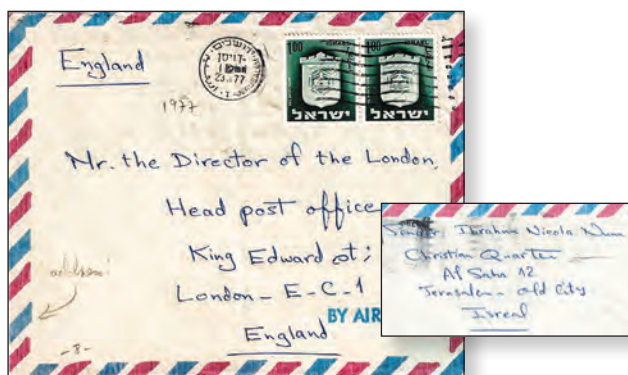 England
1977
23
77
1.00
ISRAEL
ישראל
1.00
ISRAEL
ישראל
Mr. the Director of the London,
Head post office
King Edward st;
London - E-C-1
BY AIR
England
-8-
Sender: Ibrahim Nicola
Christian Quarter
Al Saha 12
Jerusalem - old City
Isreal